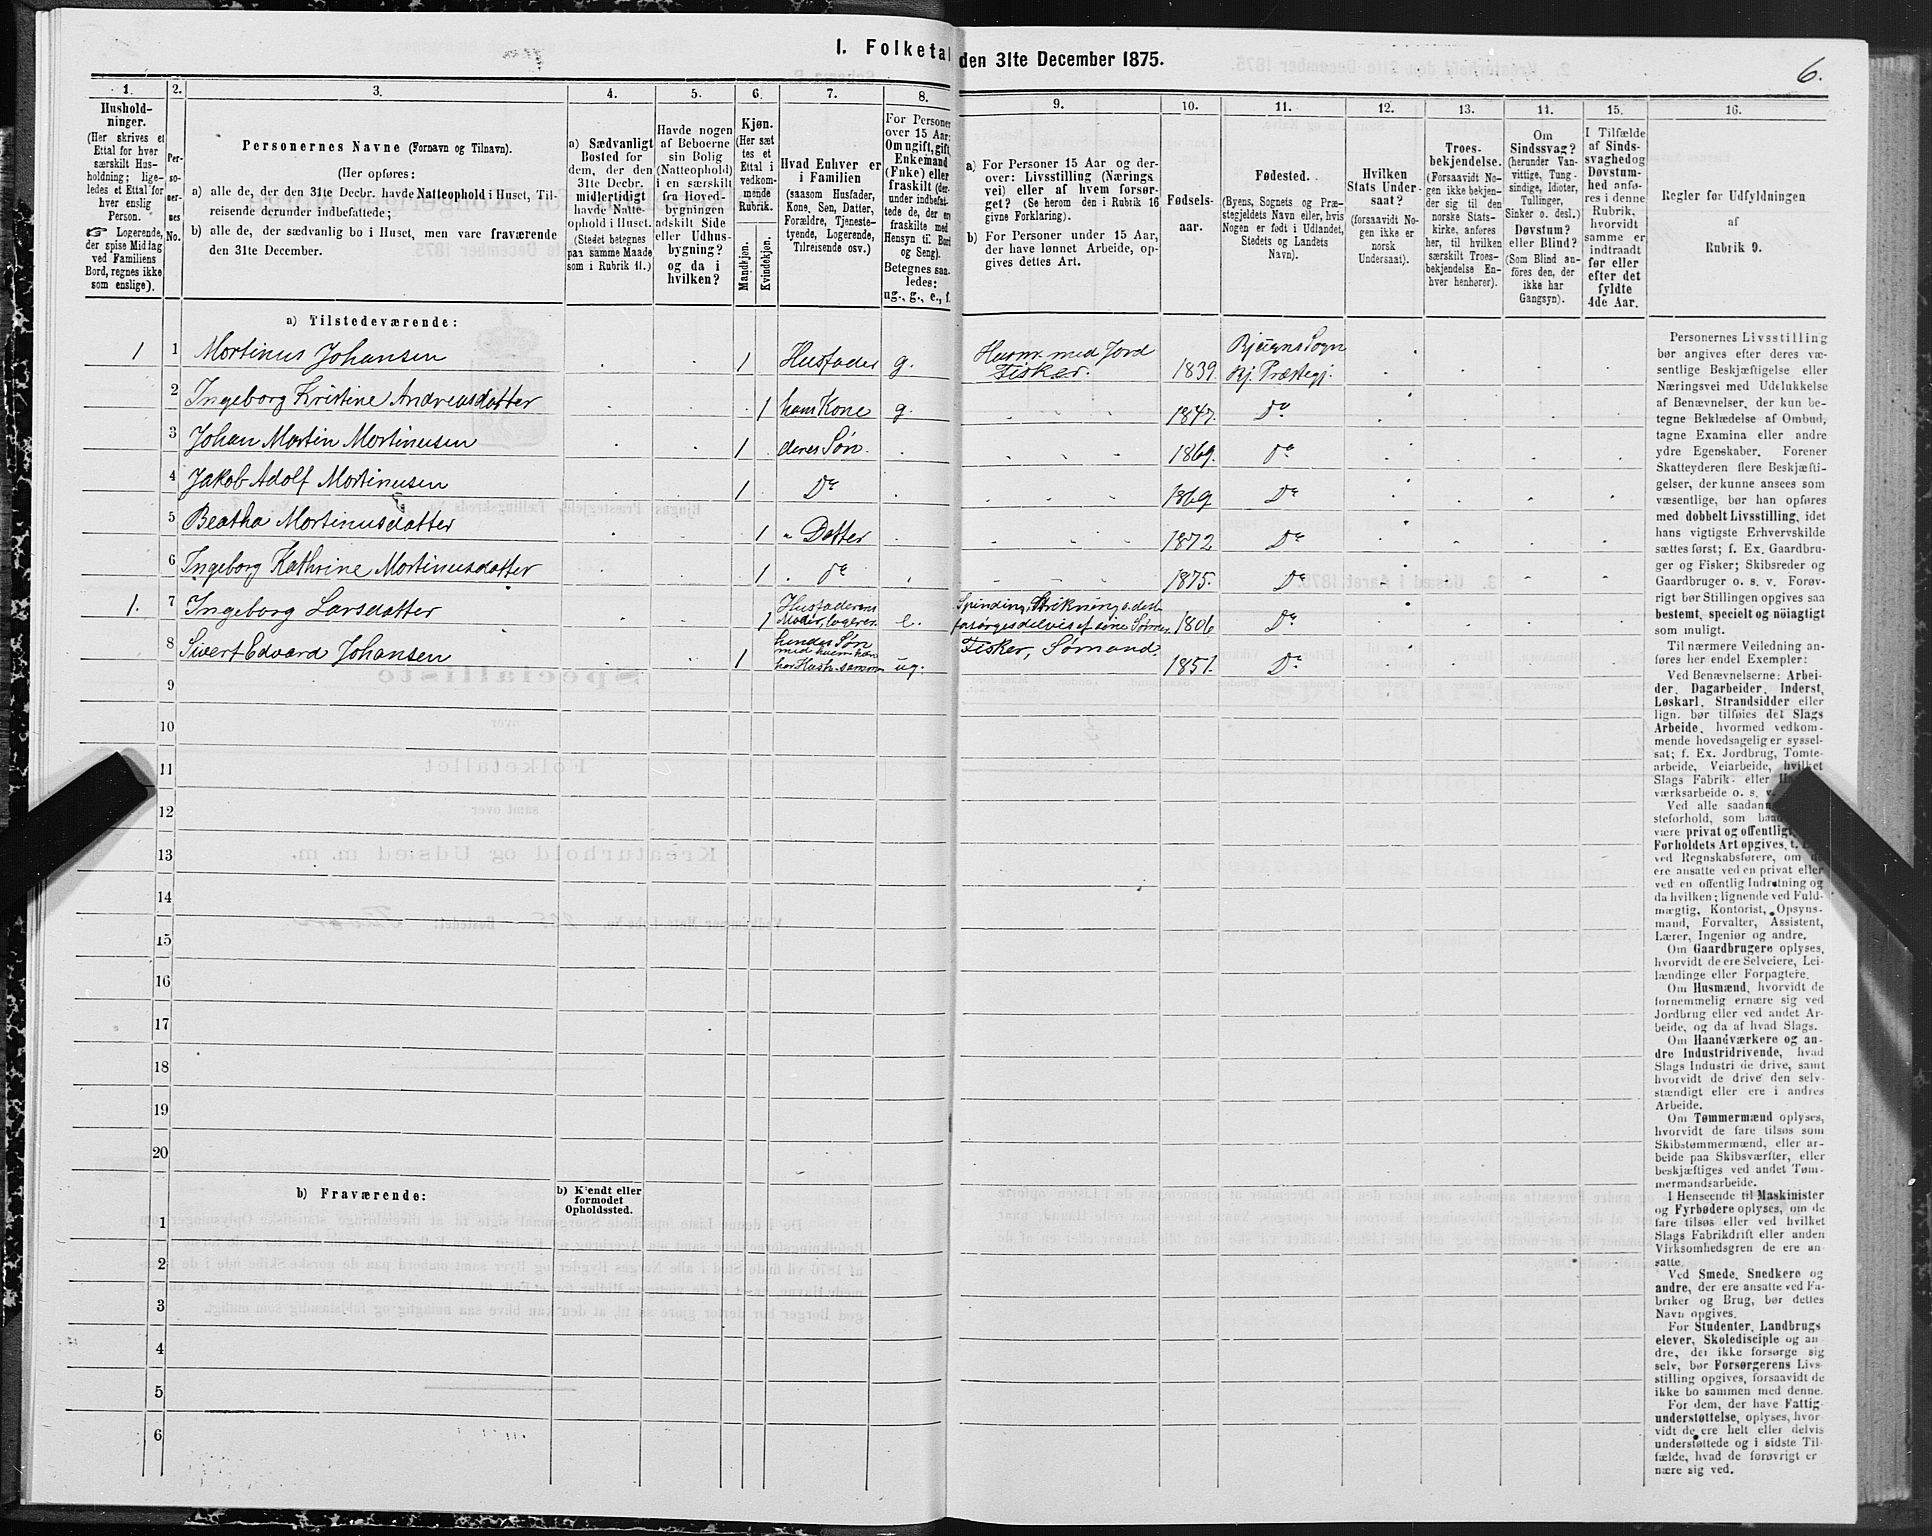 I. Folketal den 31te December 1875.
6.
1.
Hushold-
ninger.
(Her skrives et
Ettal for hver
særskilt Hus-
holdning; lige-
ledes et Ettal for
hver enslig
Person.
☞ Logerende,
der spise Middag
ved Familiens
Bord, regnes ikke
som enslige).
2.
Per-
so-
ner-
nes
No.
3.
Personernes Navne (Fornavn og Tilnavn).
(Her opføres:
a) alle de, der den 31te Decbr. havde Natteophold i Huset, Til-
reisende derunder indbefattede;
b) alle de, der sædvanlig bo i Huset, men vare fraværende
den 31te December.
4.
a) Sædvanligt
Bosted for
dem, der den
31te Decbr.
midlertidigt
havde Natte-
ophold i Huset.
(Stedet betegnes
paa samme Maade
som i Rubrik 11.)
5.
Havde nogen
af Beboerne
sin Bolig
(Natteophold)
i en særskilt
fra Hoved-
bygningen
adskilt Side
eller Udhus-
bygning?
og da i
hvilken?
6.
Kjøn.
(Her sæt
tes et
Ettal i
vedkom-
mende
Rubrik.
Mandkjøn.
Kvindekjøn.
7.
Hvad Enhver er
i Familien
(saasom Husfader,
Kone, Søn, Datter,
Forældre, Tjeneste-
tyende, Logerende,
Tilreisende osv.)
8.
For Personer
over 15 Aar:
Om ugift, gift,
Enkemand
(Enke) eller
fraskilt (der-
under indbefat-
tede de, der ere
fraskilte med
Hensyn til Bord
og Seng).
Betegnes saa-
ledes:
ug., g., e., f.
9.
a) For Personer 15 Aar og der-
over: Livsstilling (Nærings
vei) eller af hvem forsør-
get? (Se herom den i Rubrik 16
givne Forklaring).
b) For Personer under 15 Aar,
der have lønnet Arbeide, op-
gives dettes Art.
10.
Fødsels-
aar.
11.
Fødested.
(Byens, Sognets og Præ-
stegjeldets Navn eller, hvis
Nogen er født i Udlandet,
Stedets og Landets
Navn).
12.
Hvilken
Stats Under-
saat?
(forsaavidt No-
gen ikke er
norsk
Undersaat).
13.
Troes-
bekjendelse.
(Forsaavidt No-
gen ikke bekjen-
der sig til den
norske Stats-
kirke, anføres
her, til hvilken
særskilt Troes-
bekjendelse En-
hver henhører).
14.
Om
Sindssvag?
(herunder Van-
vittige, Tung-
sindige, Idioter,
Tullinger,
Sinker o. desl.)
Døvstum?
eller Blind?
(Som Blind an-
føres den, der
ikke har
Gangsyn).
15.
I Tilfælde
af Sinds-
svaghed og
Døvstum-
hed anfø-
res i denne
Rubrik,
hvorvidt
samme er
indtraadt
før eller
efter det
fyldte
4de Aar.
16.
Regler for Udfyldningen
af
Rubrik 9.
a) Tilstedeværende:
1 1 Mortinus Johansen 1 Husfader g. Husm. med Jord Fisker. 1839. Bjugns Sogn Bj. Præstegj.
2 Ingeborg Kristine Andreasdatter 1 hans Kone g. 1847. Do
3 Johan Martin Mortinusen 1 deres Søn. 1869. Do
4 Jakob Adolf Mortinusen 1 Do 1869 Do
5 Beatha Mortinusdatter 1 " Datter 1872 Do
6 Ingeborg Kathrine Mortinusdatter 1 Do 1875. Do
1. 7 Ingeborg Larsdatter 1 Husfaderens Moder, logeren. e. Spinding, Strikning o. desl. forsørges delvis af sine Sønner 1806 Do
8 Sivert Edvard Johansen 1 hendes Søn med hvem hun har Hush. sammen ug. Fisker, Sømand. 1851. Do
9
10
11
12
13
14
15
16
17
18
19
20
b) Fraværende:
b) Kjendt eller
formodet
Opholdssted.
1
2
3
4
5
6
Personernes Livsstilling
bør angives efter deres væ-
sentlige Beskjæftigelse eller
Næringsvei med Udelukkelse
af Benævnelser, der kun be-
tegne Beklædelse af Ombud,
tagne Examina eller andre
ydre Egenskaber. Forener
Skatteyderen flere Beskjæfti-
gelser, der kunne ansees som
væsentlige, bør han opføres
med dobbelt Livsstilling, idet
hans vigtigste Erhvervskilde
sættes først; f. Ex. Gaardbru-
ger og Fisker; Skibsreder og
Gaardbruger o. s. v. Forøv-
rigt bør Stillingen opgives saa
bestemt, specielt og nöiagtigt
som muligt.
Til nærmere Veiledning an-
føres her endel Exempler:
Ved Benævnelserne: Arbei-
der, Dagarbeider, Inderst,
Løskarl, Strandsidder eller
lign. bør tilføies det Slags
Arbeide, hvormed vedkom-
mende hovedsagelig er syssel-
sat; f. Ex. Jordbrug, Tomte-
arbeide, Veiarbeide, hvilket
Slags Fabrik- eller
værksarbeide o. s. v.
Ved alle
steforhold, som
være privat og offentligt,
Forholdets Art opgives, t.
ved Regnskabsførere, om
ere ansatte ved en privat eller
ved en offentlig Indretning og
da hvilken; lignende ved Fuld-
mægtig, Kontorist, Opsyns-
mand, Forvalter, Assistent,
Lærer, Ingeniør og andre.
Om Gaardbrugere oplyses,
hvorvidt de ere Selveiere, Lei-
lændinge eller Forpagtere.
Om Husmænd, hvorvidt de
fornemmelig ernære sig ved
Jordbrug eller ved andet Ar-
beide, og da af hvad Slags.
Om Haandværkere og an-
dre Industridrivende, hvad
Slags Industri de drive, samt
hvorvidt de drive den selv-
stændigt eller ere i andres
Arbeide.
Om Tømmermænd oplyses,
hvorvidt de fare tilsøs som
Skibstømmermænd, eller ar-
beide paa Skibsværfter, eller
beskjæftiges ved andet Tøm-
mermandsarbeide.
I Henseende til Maskinister
og Fyrbødere oplyses, om de
fare tilsøs eller ved hvilket
Slags Fabrikdrift eller anden
Virksomhedsgren de ere an-
satte.
Ved Smede, Snedkere og
andre, der ere ansatte ved Fa-
briker og Brug, bør dettes
Navn opgives.
For Studenter, Landbrugs
elever, Skoledisciple og an-
dre, der ikke forsørge sig
selv, bør Forsørgerens Livs-
stilling opgives, forsaavidt de
ikke bo sammen med denne.
For dem, der have Fattig-
understøttelse, oplyses, hvor-
vidt de ere helt eller delvis
understøttede og i sidste Til-
fælde, hvad de forøvrigt er
nære sig ved.